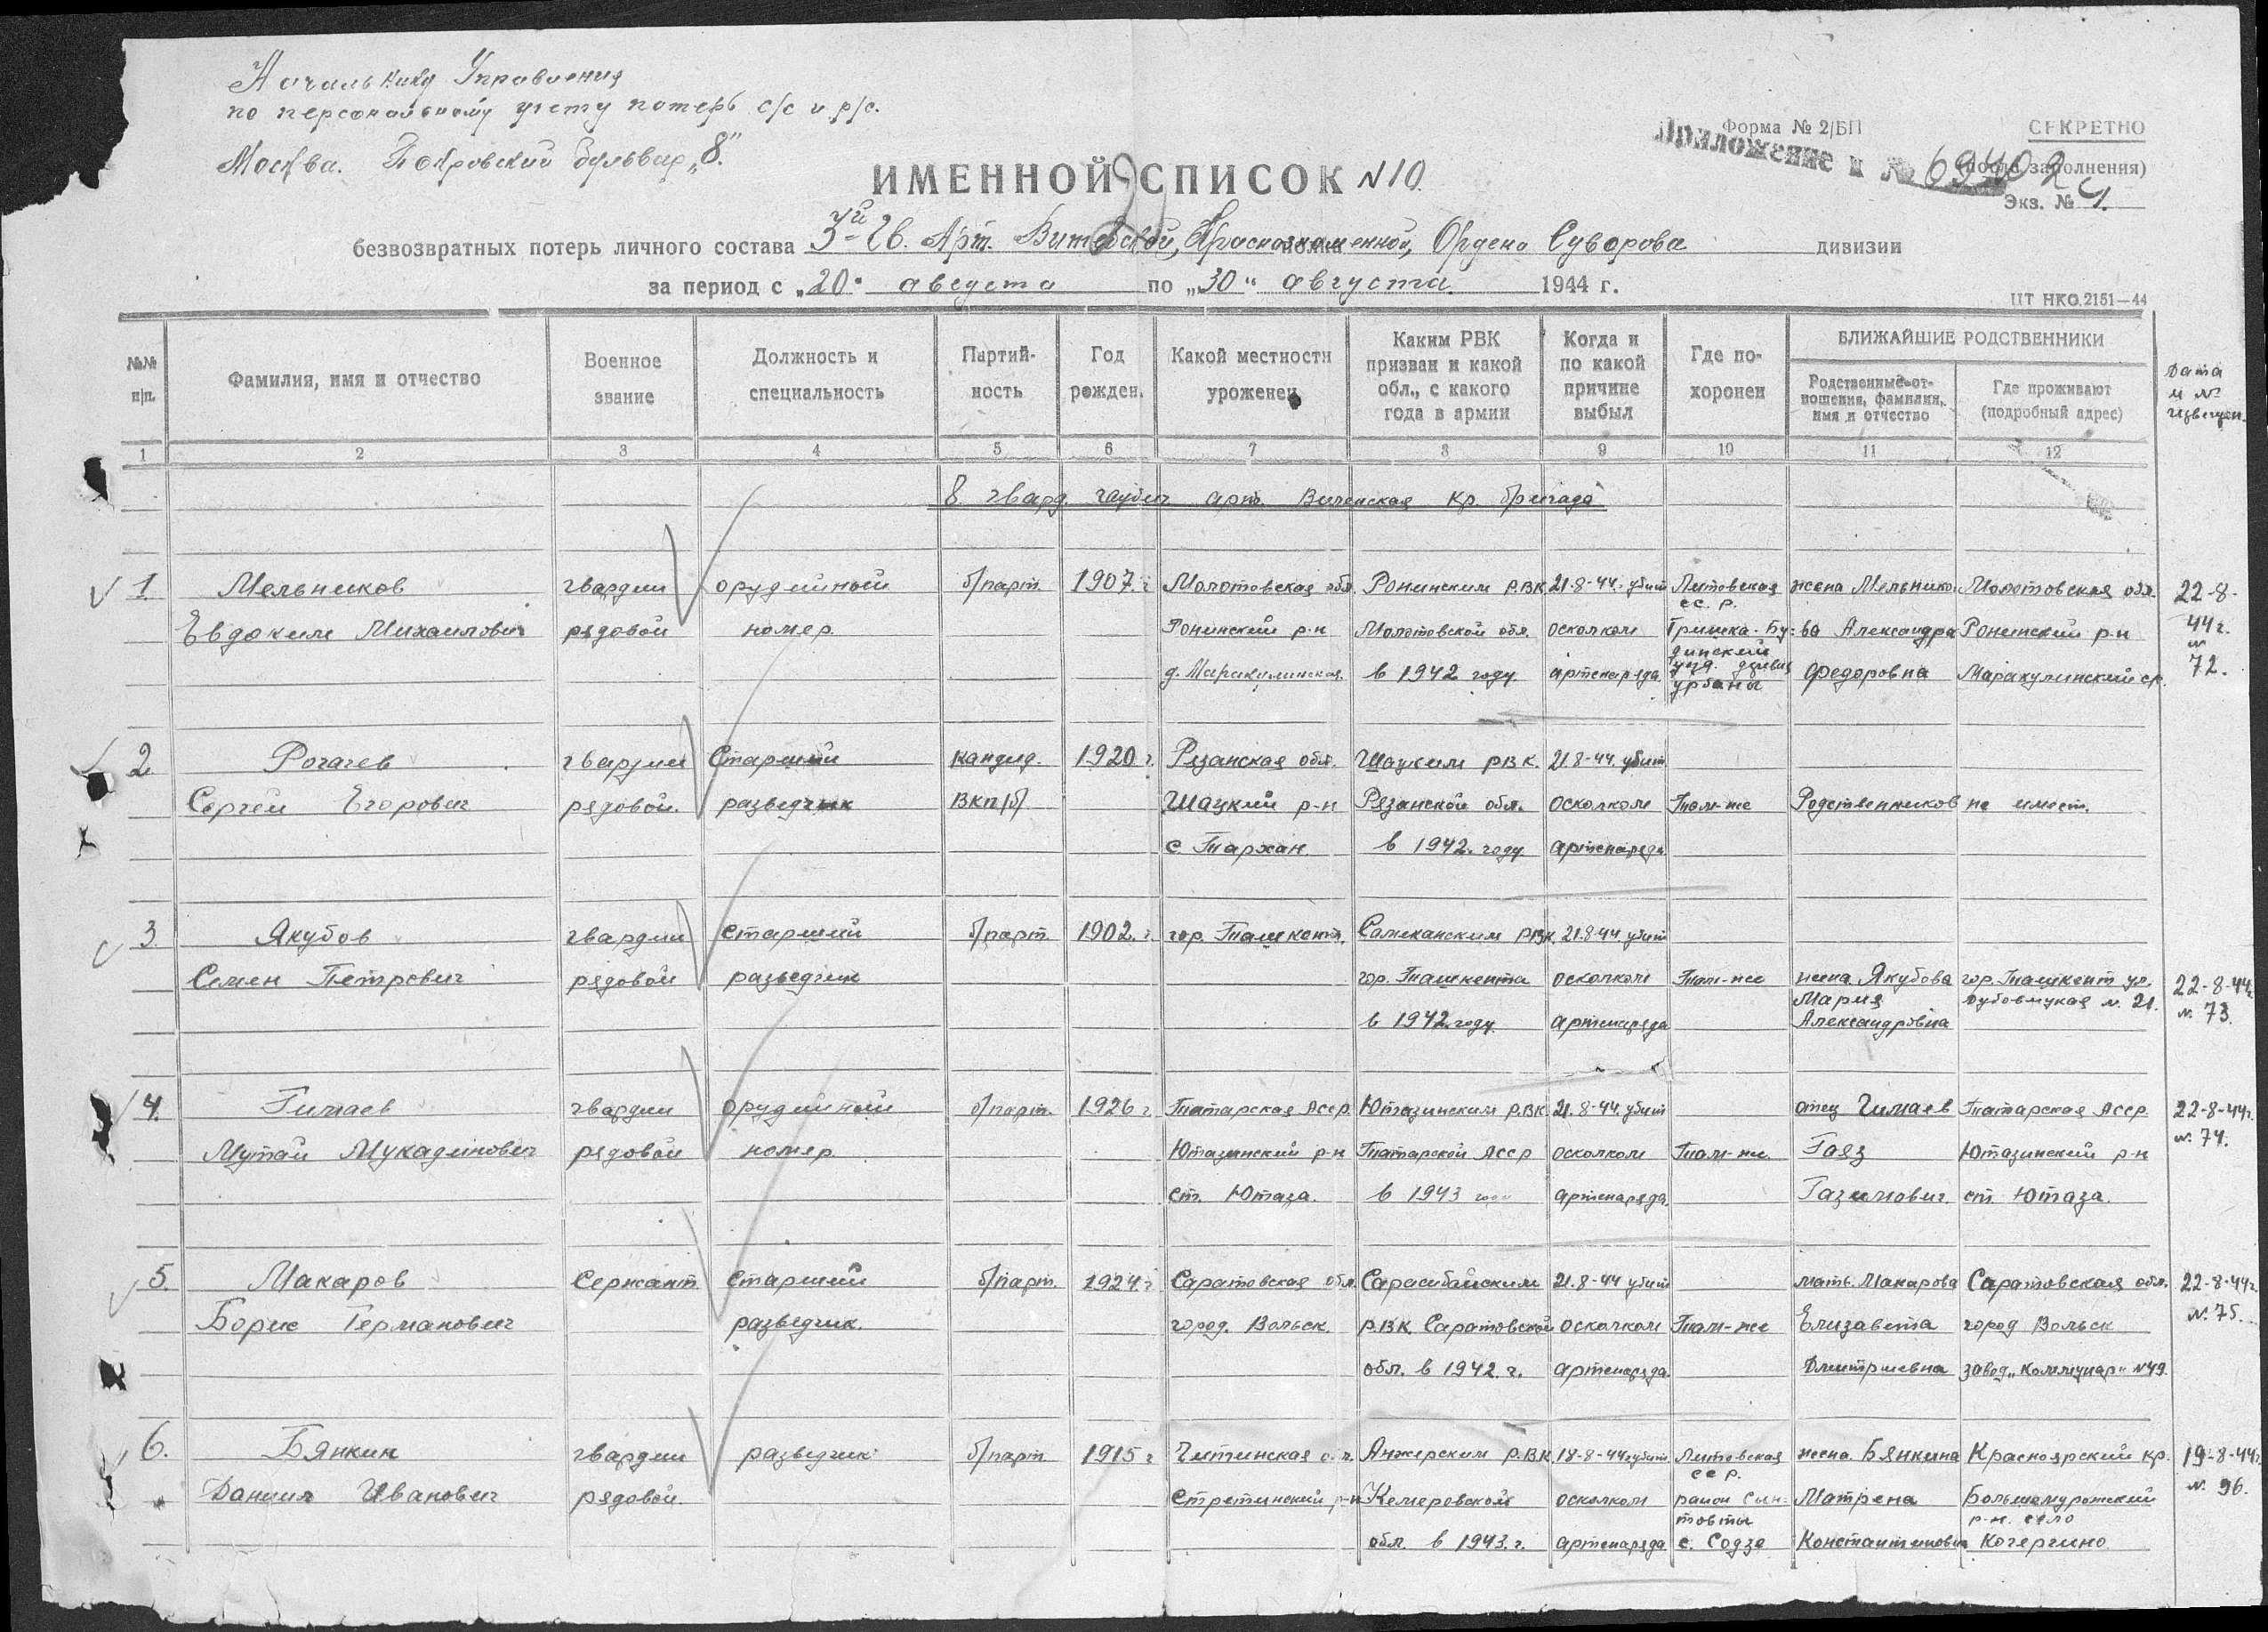 Начальнику Управления
по персональному учету потерь с/с и р/с.
Москва. Покровский бульвар „8"
Форма № 2/БП
СЕКРЕТНО
Приложение к № 69402
(после заполнения)
Экз. № 4.
ИМЕННОЙ СПИСОК №10.
безвозвратных потерь личного состава 3й Гв. Арт. Витебской, Краснознаменной, Ордена Суворова дивизии
за период с „20" августа по „30" августа 1944 г.
ЦТ НКО.2151—44
№№ п/п.
Фамилия, имя и отчество
Военное звание
Должность и специальность
Партийность
Год рожден.
Какой местности уроженец
Каким РВК призван и какой обл., с какого года в армии
Когда и по какой причине выбыл
Где похоронен
БЛИЖАЙШИЕ РОДСТВЕННИКИ
Родственные отношения, фамилия, имя и отчество
Где проживают (подробный адрес)
Дата и № извещен.
1 2 3 4 5 6 7 8 9 10 11 12
8 гвард. гаубич. арт. Виленская Кр. бригада
1. Мельников гвардии орудийный б/парт. 1907 г. Молотовская обл. РВК 21-8-44. убит Литовская жена Мельнико- Молотовская обл. 22-8-
сс.р.
Евдоким Михайлович рядовой номер р-н Молотовской обл. осколком ва Александра р-н 44 г.
№
в 1942 году. артснаряда Федоровна 72.
2. Рогачев гвардии Старший кандид. 1920 г. Рязанская обл. Шацким РВК. 21-8-44. убит
Сергей Егорович рядовой. разведчик ВКП/б/ Шацкий р-н Рязанской обл. осколком Там-же Родственников не имеет.
с. Тархан. в 1942. году артснаряда
3. Якубов гвардии Старший б/парт. 1902. г. гор. Ташкент. РВК. 21-8-44. убит
Семен Петрович рядовой разведчик гор. Ташкента осколком Там-же жена Якубова гор. Ташкент ул. 22-8-44г.
Мария № 21. № 73.
в 1942 году. артснаряда Александровна
4. Гимаев гвардии орудийный б/парт. 1926 г. Татарская АССР. Ютазинским РВК 21-8-44. убит отец Гимаев Татарская АССР 22-8-44г.
Мутай Мукадинович рядовой номер Ютазинский р-н Татарской АССР осколком Там-же. Гаяз Ютазинский р-н № 74.
ст. Ютаза. в 1943 году артснаряда. Газимович. ст. Ютаза.
5. Макаров Сержант Старший б/парт. 1924. г. Саратовская обл. 21-8-44 убит мать. Макарова Саратовская обл. 22-8-44г.
Борис Германович разведчик. город. Вольск. РВК. Саратовской осколком Там-же Елизавета город Вольск № 75.
обл. в 1942. г. артснаряда. Дмитриевна завод „Коммунар" №49.
6. Бянкин гвардии разведчик б/парт 1915 г Читинская о.л. Анжерским РВК 18-8-44г убит Литовская жена. Бянкина Красноярский кр. 19-8-44г.
сср.
Даниил Иванович рядовой. Стретинский р-н Кемеровской осколком район Матрена Большемуртский № 96.
р-н. село
обл. в 1943. г. артснаряда с. Содзе Константиновна Кочергино